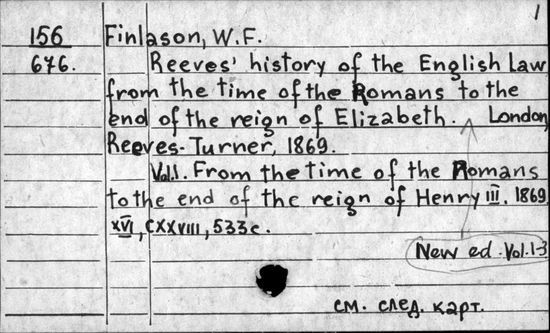 1
156 Finlason, W.F.
676. Reeves' history of the English Law
from the time of the Romans to the
end of the reign of Elizabeth. London
Reeves-Turner, 1869.
Vol.1. From the time of the Romans
to the end of the reign of Henry III. 1869
XVI, CXXVIII, 533c.
New ed. Vol.1-3
см. след. карт.